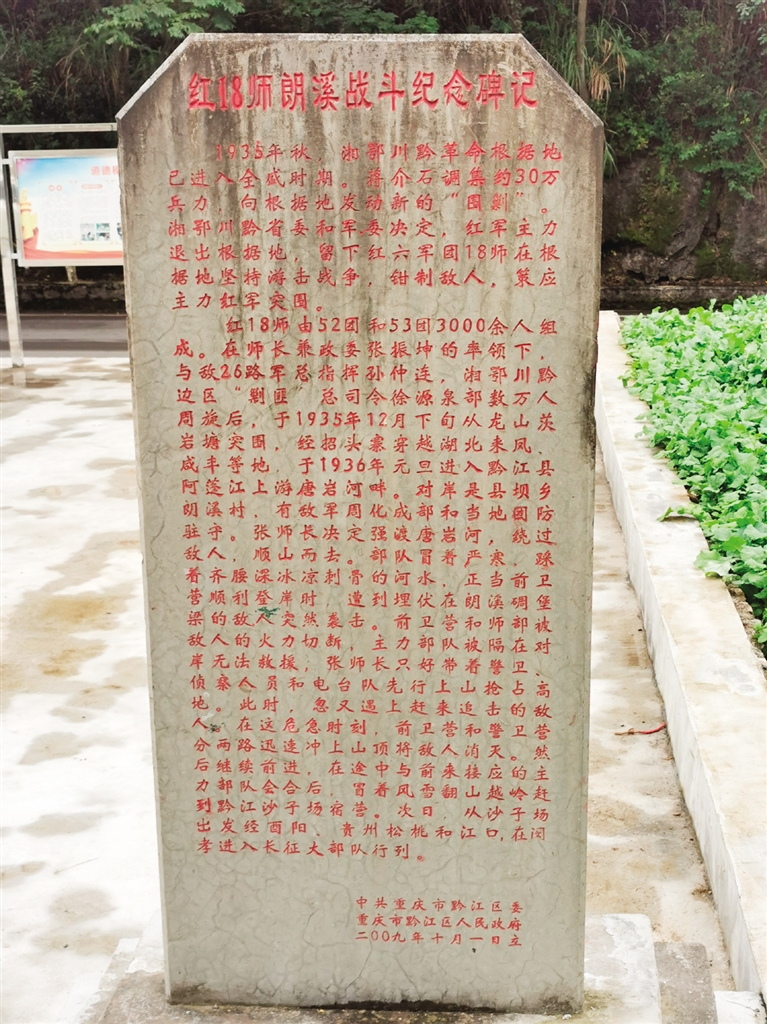 红18师朗溪战斗纪念碑记
1935年秋，湘鄂川黔革命根据地
已进入全盛时期。蒋介石调集约30万
兵力，向根据地发动新的“围剿”。
湘鄂川黔省委和军委决定，红军主力
退出根据地，留下红六军团18师在根
据地坚持游击战争，钳制敌人，策应
主力红军突围。
红18师由52团和53团3000余人组
成。在师长兼政委张振坤的率领下，
与敌26路军总指挥孙仲连，湘鄂川黔
边区“剿匪”总司令徐源泉部数万人
周旋后，于1935年12月下旬从龙山茨
岩塘突围，经招头寨穿越湖北来凤、
咸丰等地，于1936年元旦进入黔江县
阿蓬江上游唐岩河畔。对岸是县坝乡
朗溪村，有敌军周化成部和当地团防
驻守。张师长决定强渡唐岩河，绕过
敌人，顺山而去。部队冒着严寒、踩
着齐腰深冰凉刺骨的河水，正当前卫
营顺利登岸时，遭到埋伏在朗溪碉堡
梁的敌人突然袭击。前卫营和师部被
敌人的火力切断，主力部队被隔在对
岸无法救援，张师长只好带着警卫、
侦察人员和电台队先行上山抢占高
地。此时，忽又遇上赶来追击的敌
人。在这危急时刻，前卫营和警卫营
分两路迅速冲上山顶将敌人消灭。然
后继续前进，在途中与前来接应的主
力部队会合后，冒着风雪翻山越岭赶
到黔江沙子场宿营。次日，从沙子场
出发经酉阳、贵州松桃和江口，在闵
孝进入长征大部队行列。
中共重庆市黔江区委
重庆市黔江区人民政府
二00九年十月一日立